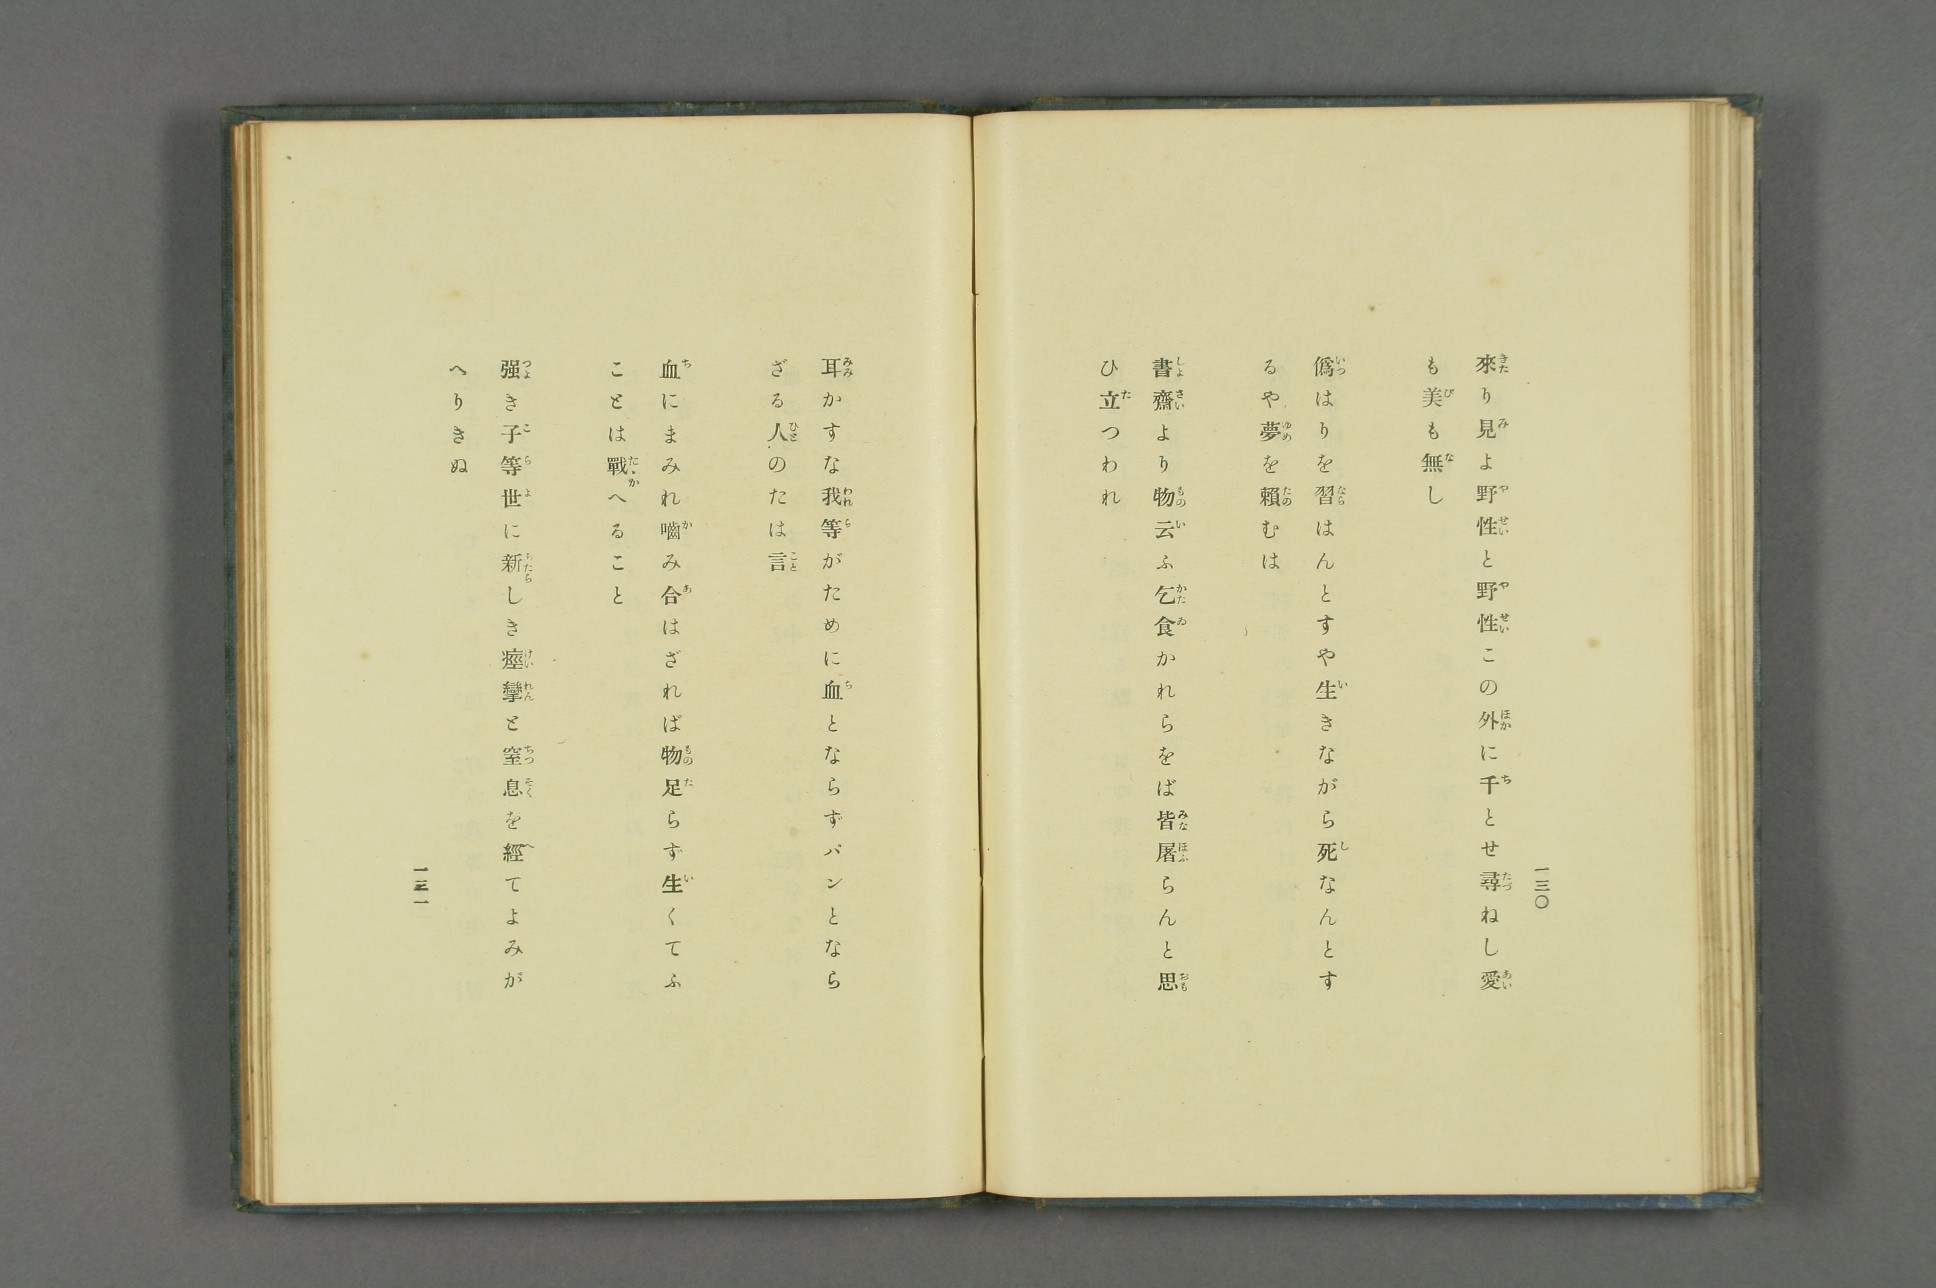 來り見よ野性と野性この外に千とせ尋ねし愛
も美も無し
僞はりを習はんとすや生きながら死なんとす
るや夢を賴むは
書齋より物云ふ乞食かれらをば皆屠らんと思
ひ立つわれ
一三〇
耳かすな我等がために血とならずパンとなら
ざる人のたは言
血にまみれ嚙み合はざれば物足らず生くてふ
ことは戰へること
强き子等世に新しき痙攣と窒息を經てよみが
へりきぬ
一三一